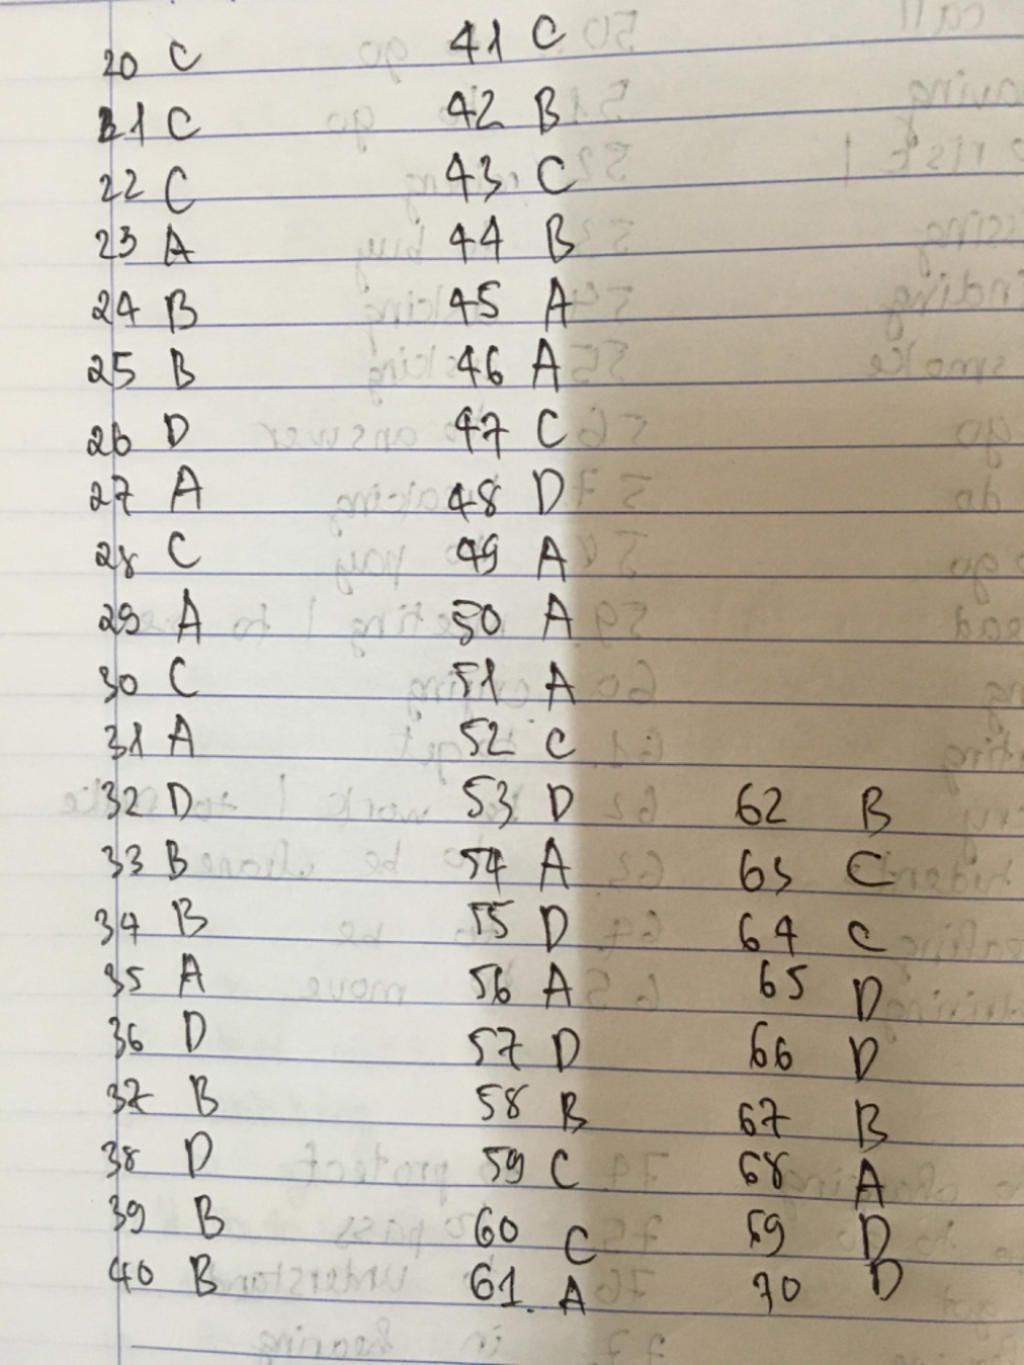 20 C
21 C
22 C
23 A
24 B
25 B
26 D
27 A
28 C
29 A
30 C
31 A
32 D
33 B
34 B
35 A
36 D
37 B
38 D
39 B
40 B
41 C
42 B
43 C
44 B
45 A
46 A
47 C
48 D
49 A
50 A
51 A
52 C
53 D
54 A
55 D
56 A
57 D
58 B
59 C
60 C
61. A
62 B
63 C
64 C
65 D
66 D
67 B
68 A
59 D
70 D